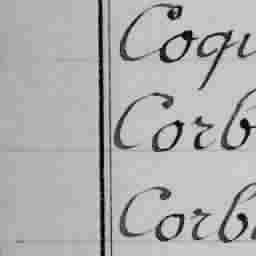 Coqu
Corb
Corb